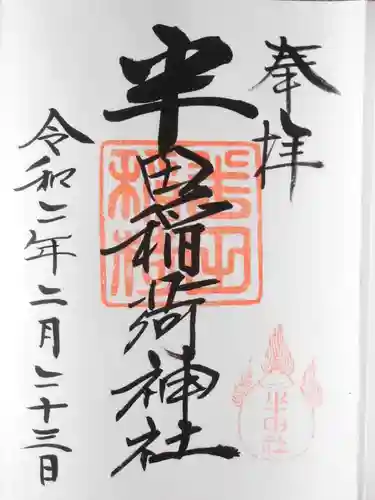 奉拝
半田稲荷神社
令和二年二月二十三日